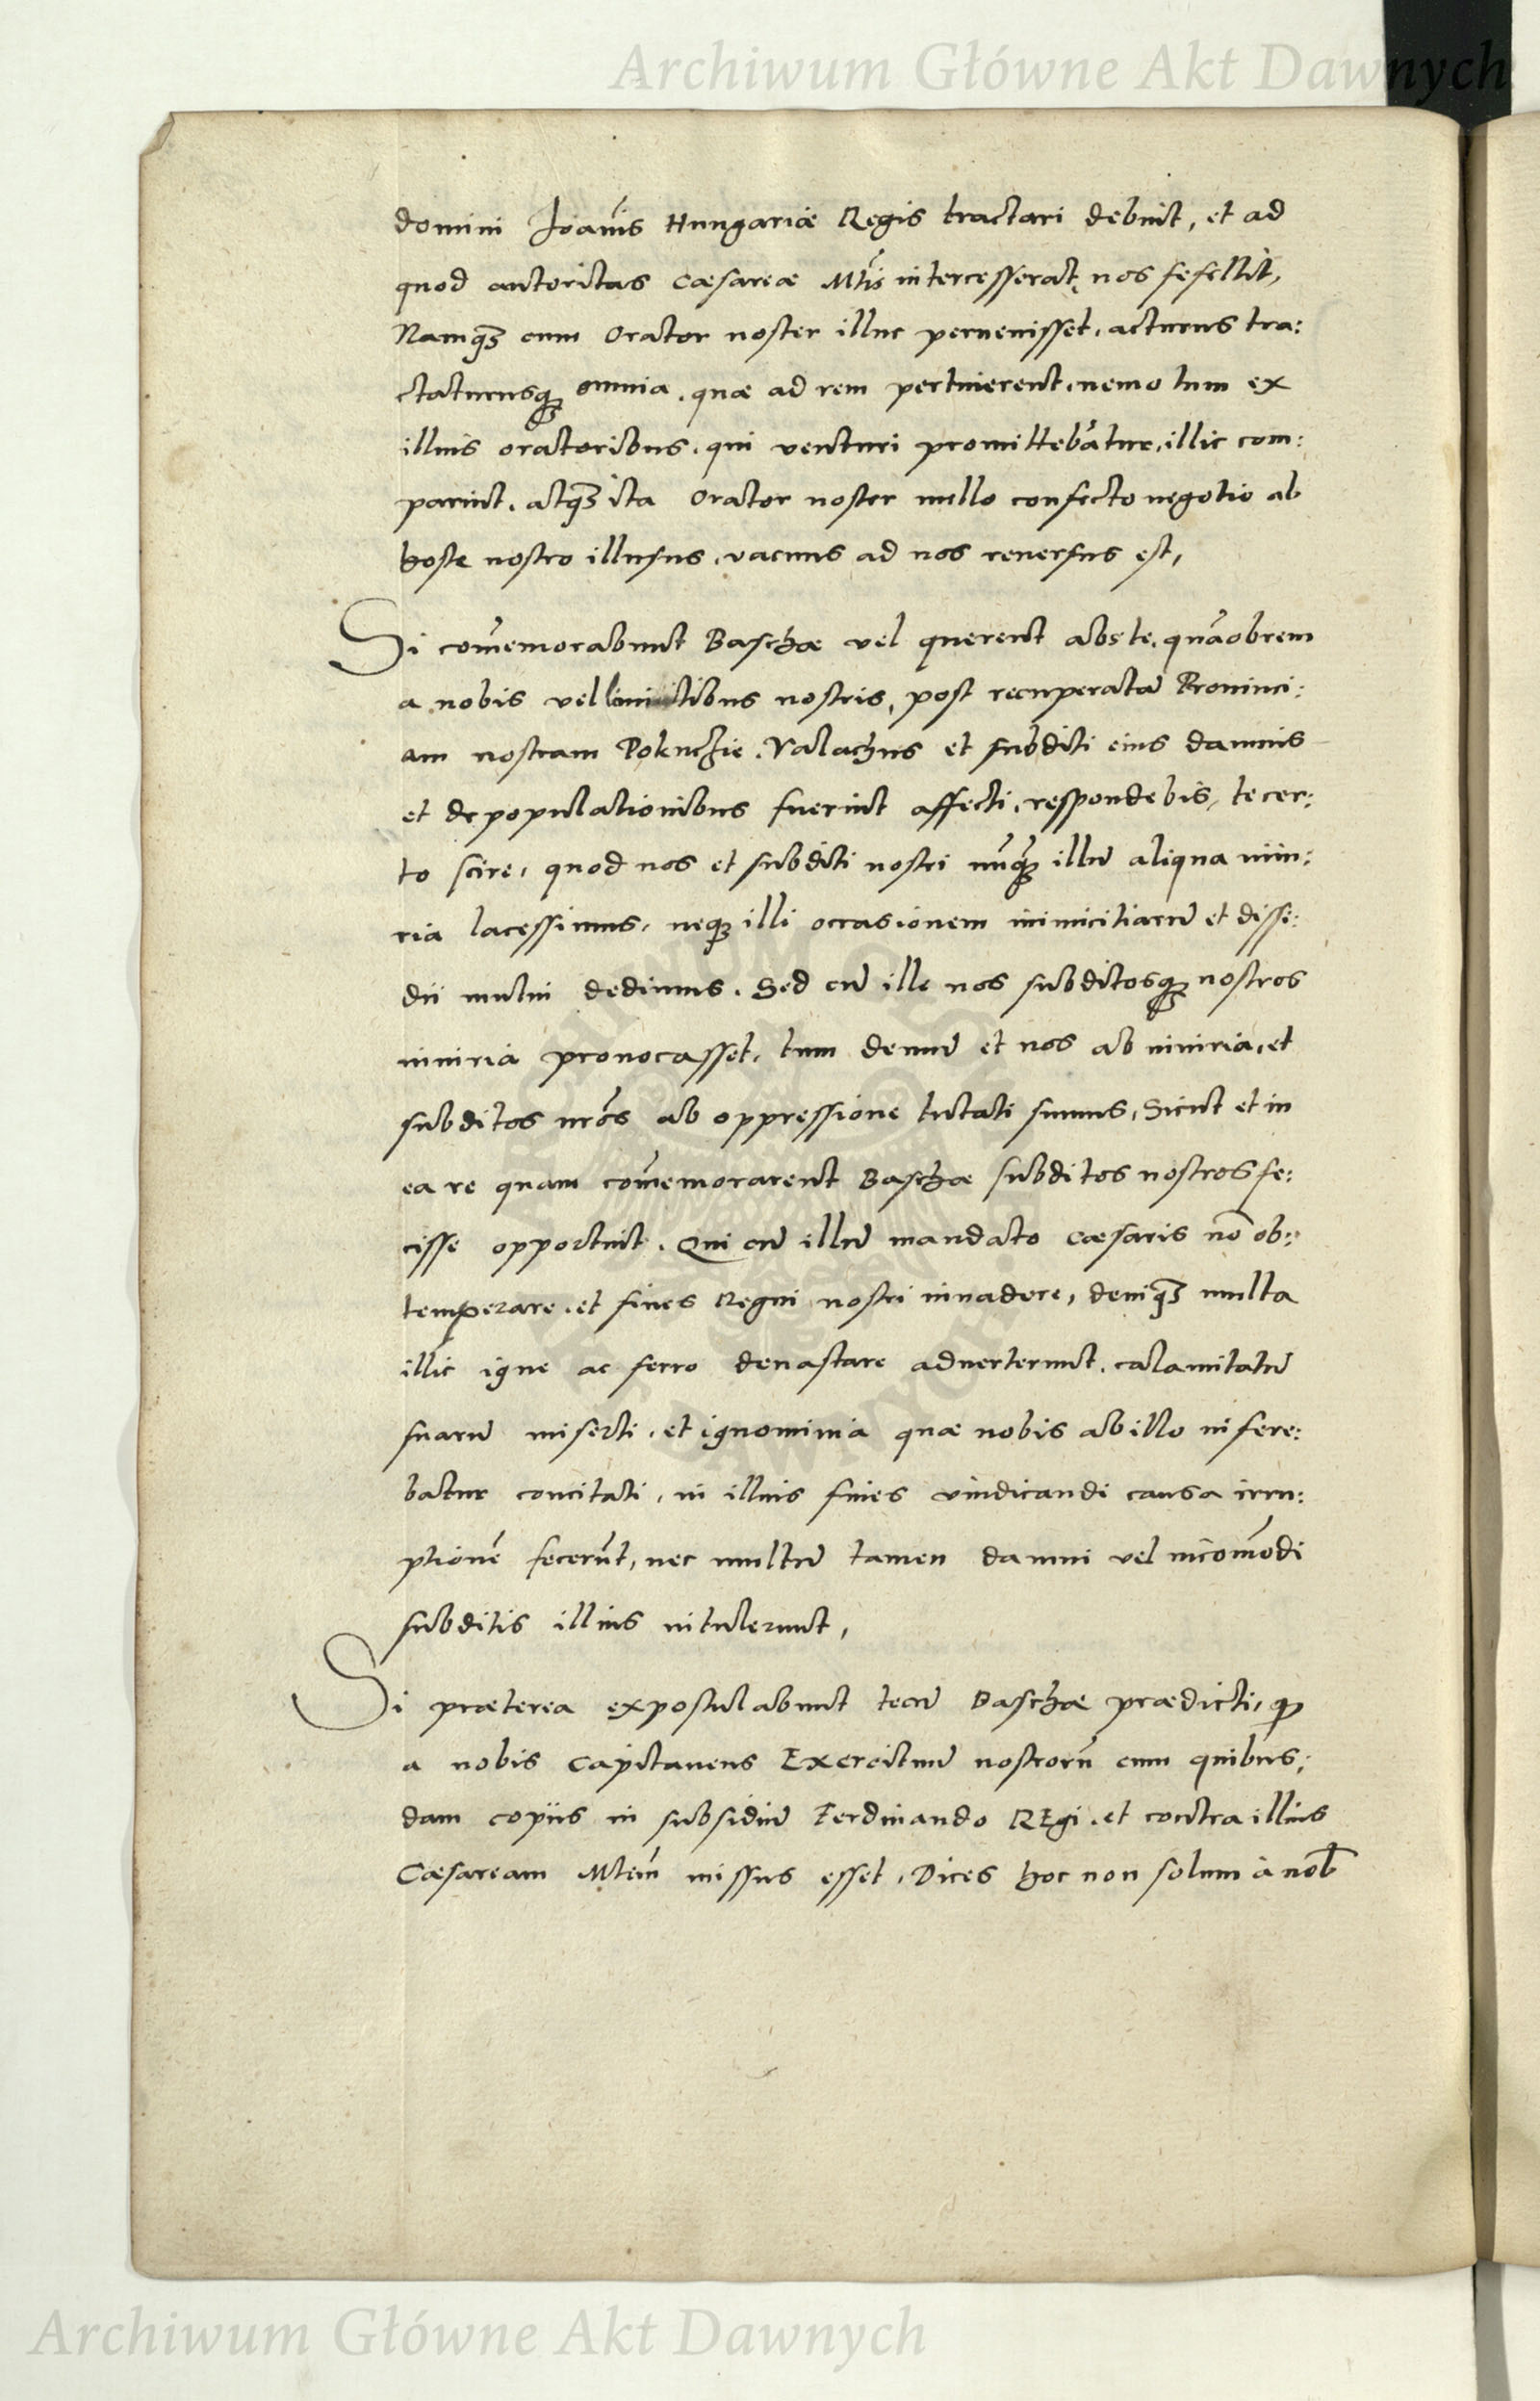 Archiwum Główne Akt Dawnych
domini Joan̄is Hungariæ Regis tractari debuit, et ad
quod autoritas Cæsareæ Mt̄is intercesserat, nos fefellit,
Namq3 cum Orator noster illuc peruenisset, acturus tra:
ctaturusq3 omnia, quæ ad rem pertinerent, nemo tum ex
illius oratoribus, qui venturi promittebãtur, illic com:
paruit, atq3 ita Orator noster nullo confecto negotio ab
hoste nostro illusus, vacuus ad nos reuersus est,
Si com̄emorabunt Baschæ vel querent abs te, quãobrem
a nobis vel limitibus nostris, post recuperatã Prouinci:
am nostram Pokuczie, Valachus et subditi eius damnis
et depopulationibus fuerint affecti, respondebis, te cer:
to scire, quod nos et subditi nostri nūq3 illū aliqua iniu:
ria lacessimus, neq3 illi occasionem inimicitiarū et disse:
dii mutui dedimus. Sed cū ille nos subditosq3 nostros
iniuria prouocasset, tum demū et nos ab iniuria, et
subditos nr̄os ab oppressione tutati sumus, Sicut et in
ea re quam com̄emorarent Baschæ subditos nostros fe:
cisse opportuit. Qui cū illū mandato Cæsaris nō ob:
temperare, et fines Regni nostri inuadere, deniq3 multa
illic igne ac ferro deuastare aduerterunt, calamitatū
suarū miserti, et ignominia quæ nobis ab illo infere:
batur concitati, in illius fines vindicandi causa irru:
ptionē fecerūt, nec multū tamen damni vel incom̄odi
subditis illius intulerunt,
Si præterea expostulabunt tecū Baschæ prædicti, q3
a nobis Capitaneus Exercituū nostrorū cum quibus:
dam copiis in subsidiū Ferdinando REgi, et contra illius
Cæsaream Mtem̄ missus esset, Dices hoc non solum à nob̄
Archiwum Główne Akt Dawnych